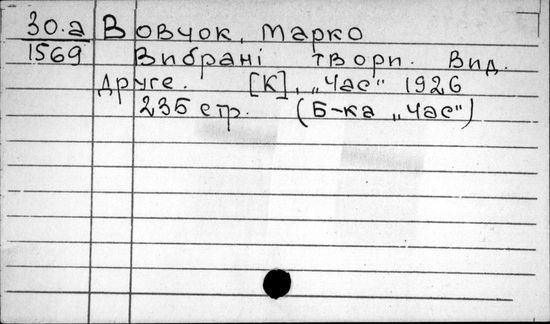 30.а Вовчок, Марко
1569 Вибрані твори. Вид.
друге. [К], „Час“ 1926
235 стр. (Б-ка „Час“)